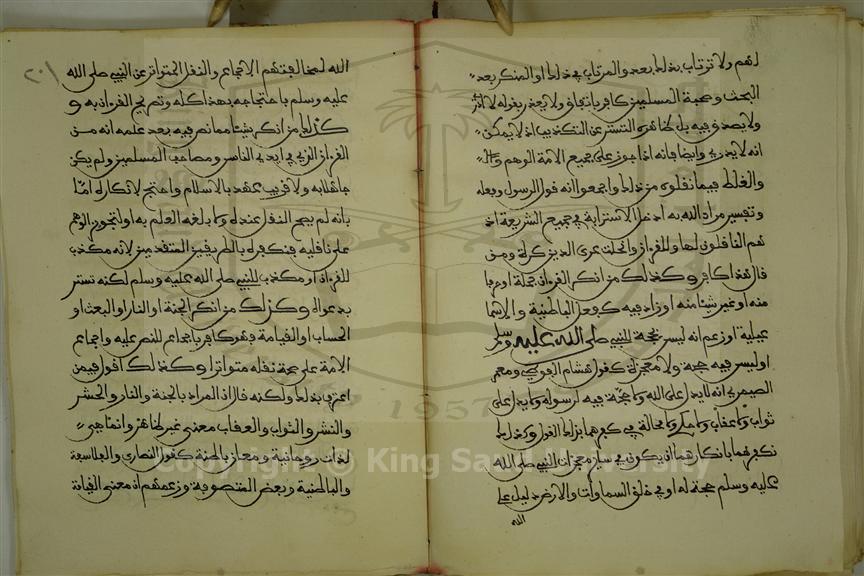 لهم ولا ترتاب بذلك بعد والمرتاب في ذلك او المنكر بعد
البحث وصحبة المسلمين كافر باتفاق ولا يعذر بقوله لا ادري
ولا يصدق فيه بل ظاهره التستر عن التكذيب اذ لا يمكن
انه لا يدري وايضا فانه اذا جوز على جميع الامة الوهم
والغلط فيما نقلوه من ذلك واجمعوا انه قول الرسول وفعله
وتفسير مراد الله به ادخل الاسترابة في جميع الشريعة اذ
هم الناقلون لها وللقران وانحلت عرى الدين كرة ومن
قال هذا كافر وكذلك من انكر القران جملة او حرفا
منه او غير شيئا منه او زاد فيه كفعل الباطنية والاسما
عيلية او زعم انه ليس بحجة للنبي صلى الله عليه وسلم
او ليس فيه حجة ولا معجزة كقول هشام الفوطي ومعمر
الصيمري انه لا يدل على الله ولا حجة فيه لرسوله ولا يدل على
ثواب ولا عقاب ولا حكم ولا محالة في كفرهما بذلك القول وكذلك
نكفرهما بانكارهما ان يكون في سائر معجزات النبي صلى الله
عليه وسلم حجة له او في خلق السماوات والارض دليل على
الله
الله لمخالفتهم الاجماع والنقل المتواتر عن النبي صلى الله
عليه وسلم باحتجاجه بهذا كله وتصريح القران به و
كذلك من انكر شيئا مما نص فيه بعد علمه انه من
القران الذي في ايدي الناس ومصاحف المسلمين ولم يكن
جاهلا به ولا قريب عهد بالاسلام واحتج لانكاره اما
بانه لم يصح النقل عنده ولا بلغه العلم به او لتجويز الوهم
على ناقليه فنكفره بالطريقين المتقدمين لانه مكذب
للقران او مكذب للنبي صلى الله عليه وسلم لكنه تستر
بدعواه وكذلك من انكر الجنة او النار او البعث او
الحساب او القيامة فهو كافر باجماع للنص عليه واجماع
الامة على صحة نقله متواترا وكذلك اقول فيمن
اعترف بذلك ولكنه قال ان المراد بالجنة والنار والحشر
والنشر والثواب والعقاب معنى غير ظاهره وانما هي
لذات روحانية ومعان باطنة كقول النصارى والفلاسفة
والباطنية وبعض المتصوفة وزعمهم ان معنى القيامة
Copyright © King Saud University
1957